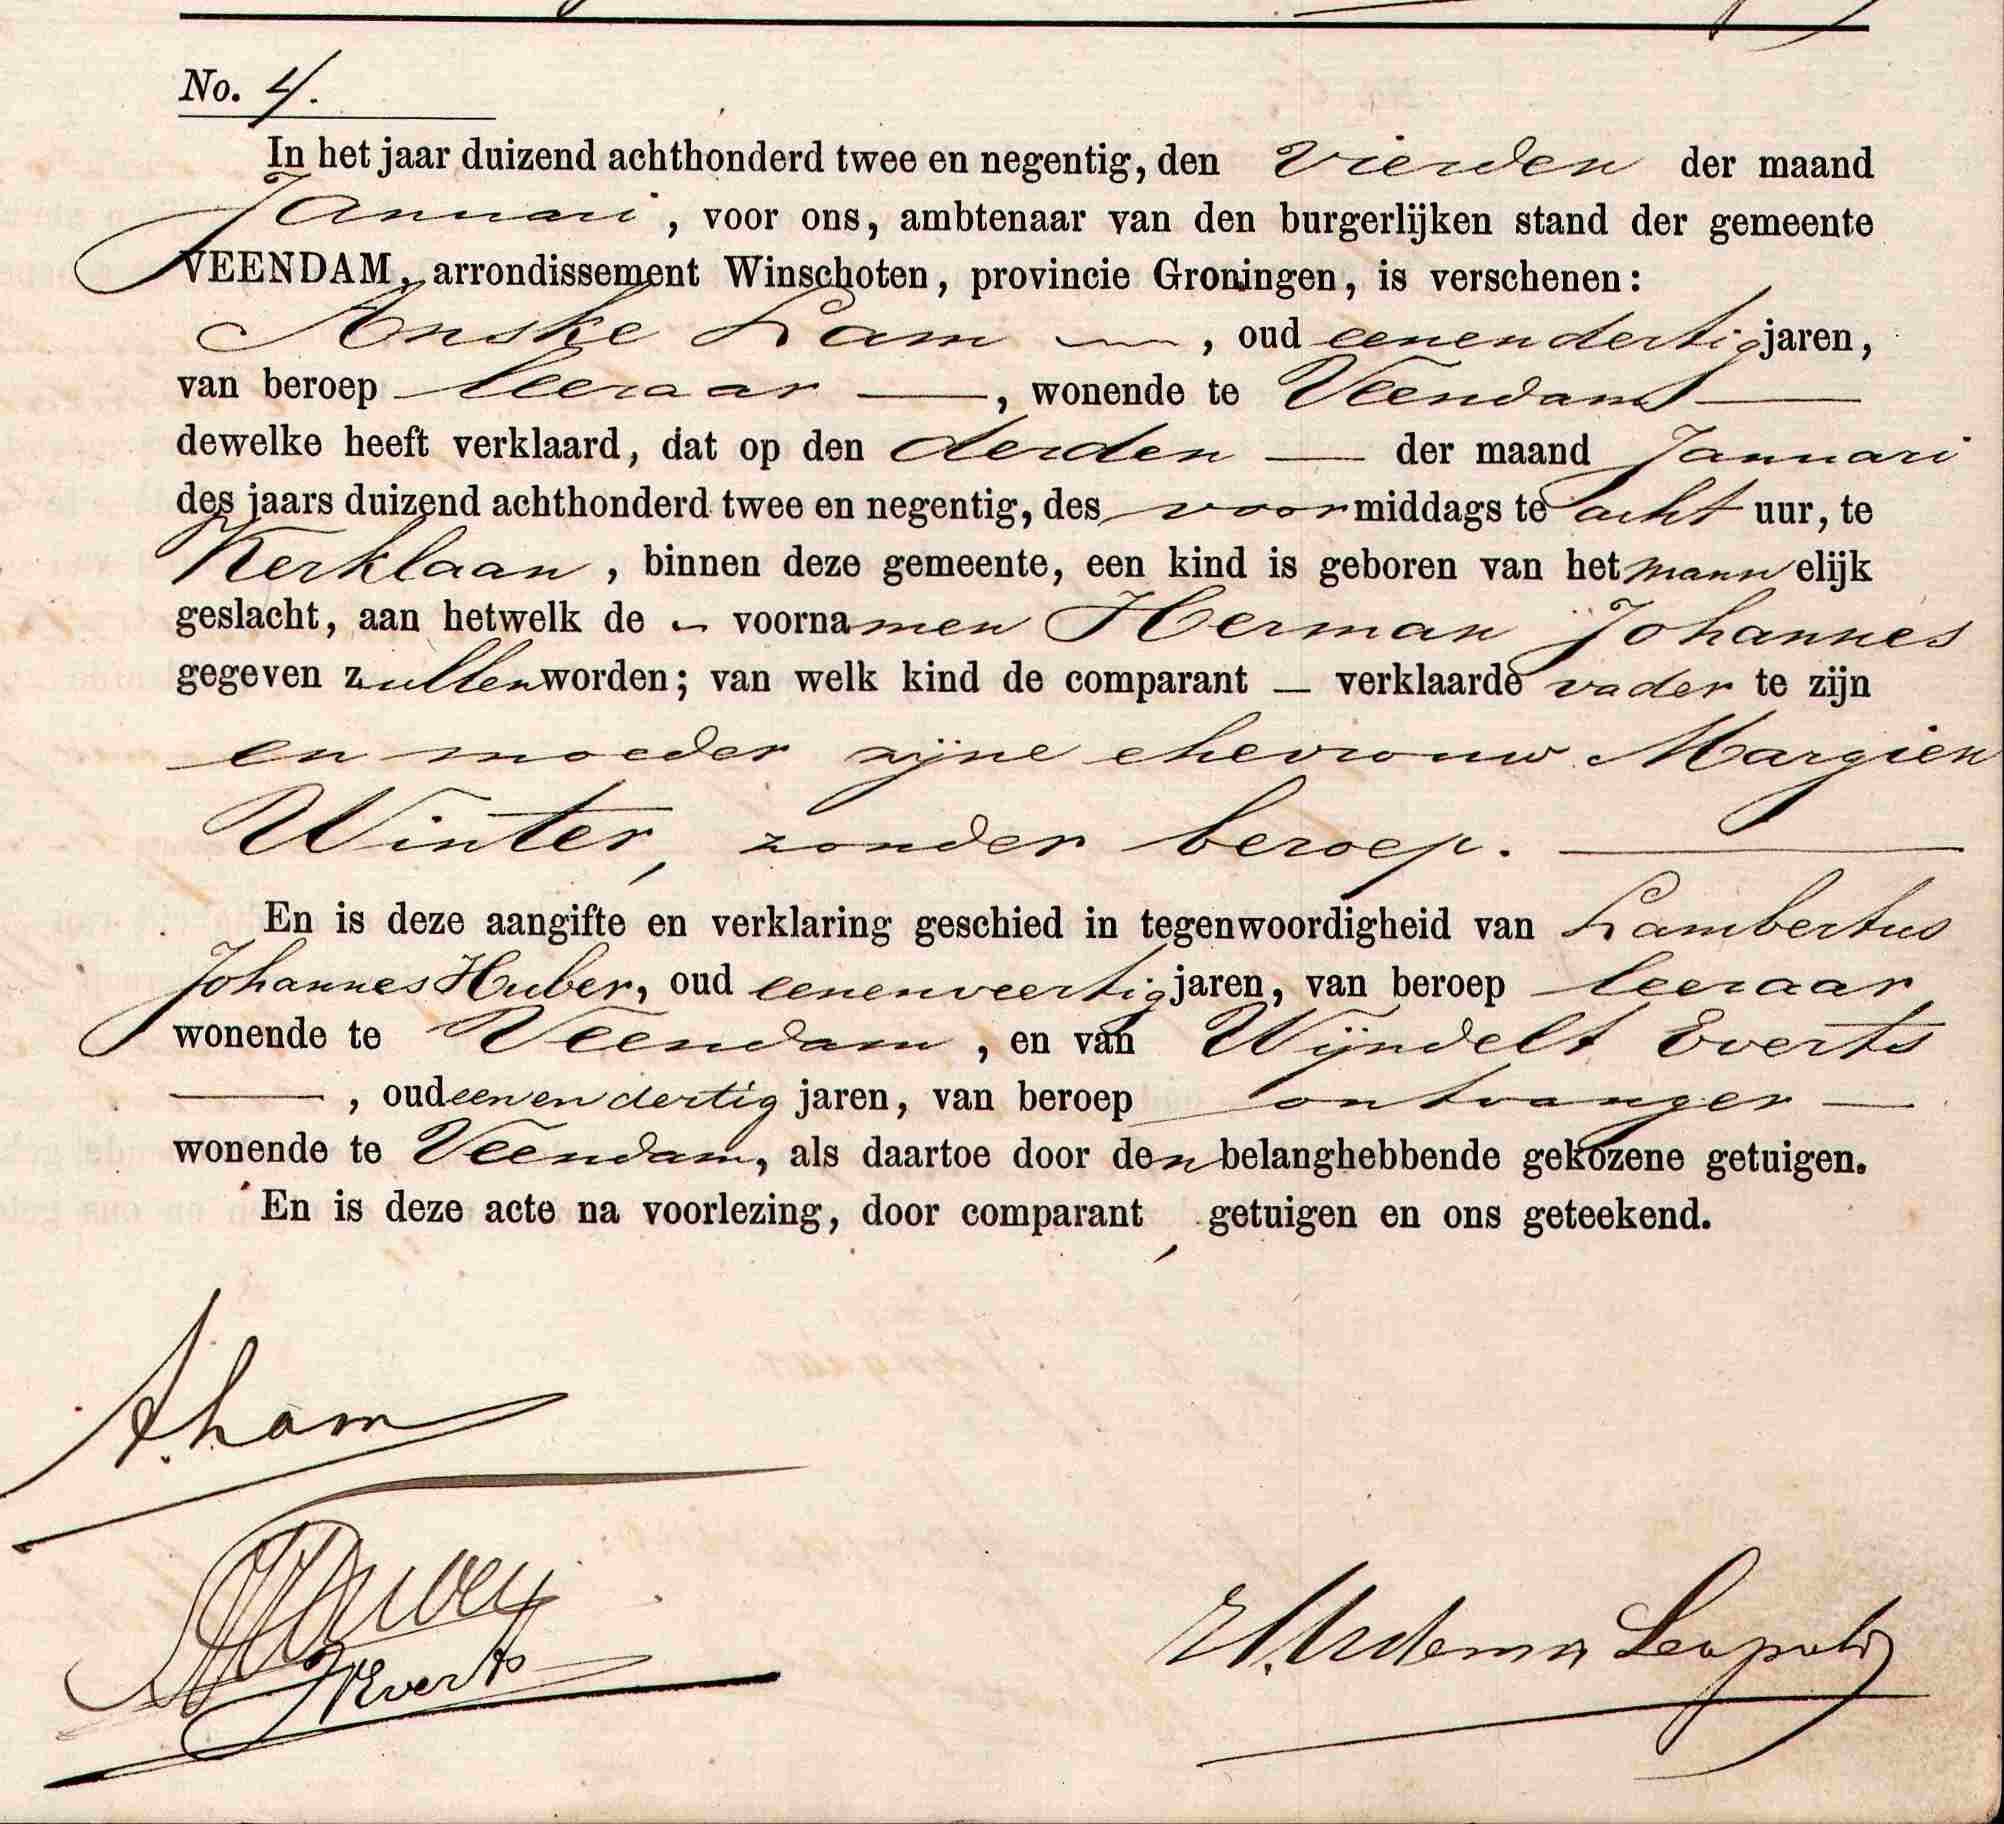 No. 4.
In het jaar duizend achthonderd twee en negentig, den vierden der maand
Januari, voor ons, ambtenaar van den burgerlijken stand der gemeente
VEENDAM, arrondissement Winschoten, provincie Groningen, is verschenen:
Anske Lam —, oud eenendertig jaren,
van beroep leeraar —, wonende te Veendam —
dewelke heeft verklaard, dat op den derden — der maand Januari
des jaars duizend achthonderd twee en negentig, des voormiddags te acht uur, te
Kerklaan, binnen deze gemeente, een kind is geboren van het mannelijk
geslacht, aan hetwelk de - voornamen Herman Johannes
gegeven zullen worden; van welk kind de comparant — verklaarde vader te zijn
en moeder zijne ehevrouw Margien
Winter, zonder beroep. —
En is deze aangifte en verklaring geschied in tegenwoordigheid van Lambertus
Johannes Huber, oud eenenveertig jaren, van beroep leeraar,
wonende te Veendam, en van Wijndelt Everts
—, oud eenendertig jaren, van beroep ontvanger —
wonende te Veendam, als daartoe door den belanghebbende gekozene getuigen.
En is deze acte na voorlezing, door comparant, getuigen en ons geteekend.
A. Lam
Huber
WEverts
Uldema Leopold